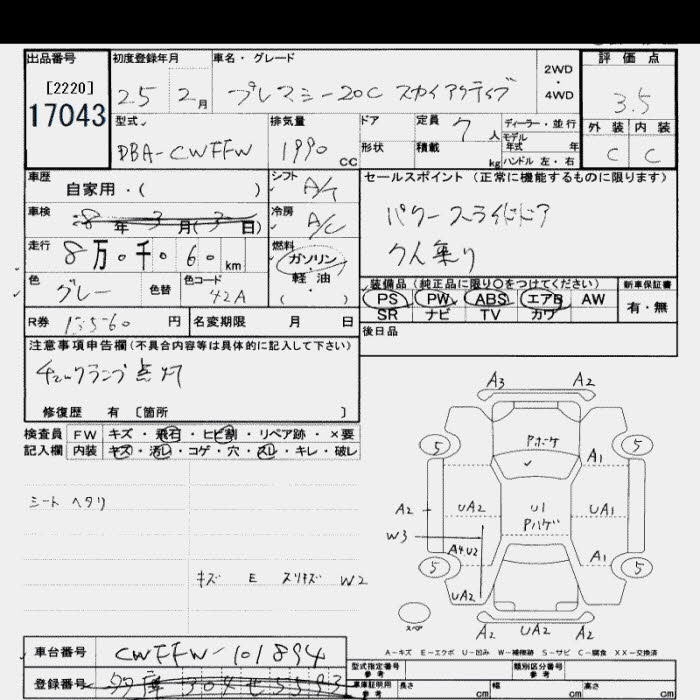 出品番号 初度登録年月 車名・グレード 2WD・4WD 評価点
[2220]
17043 25 2月 プレマシー20C スカイアクティブ 3.5
型式 排気量 ドア 定員 7人 ディーラー・並行 外装 内装
DBA-CWFFW 1990 CC 形状 積載 kg モデル年式 年 ハンドル 左・右 C C
車歴 自家用・( ) シフト A/T セールスポイント(正常に機能するものに限ります)
車検 8年3月(3日) 冷房 A/C パワースライドドア
走行 8万0千060km 燃料 ガソリン・軽油・( ) 7人乗り
色 グレー 色替 色コード 42A 装備品(純正品に限り○をつけてください) 新車保証書
PS PW ABS エアB AW 有・無
SR ナビ TV カワ
R券 13560円 名変期限 月 日 後日品
注意事項申告欄(不具合内容等は具体的に記入して下さい)
チェックランプ点灯
修復歴 有 〔箇所 〕
検査員 FW キズ・飛石・ヒビ割・リペア跡・×要
記入欄 内装 キズ・汚レ・コゲ・穴・スレ・キレ・破レ
シート ヘタリ
キズ E スリキズ W2
A3 A2
5 Pボケ 5
A1
A2 UA2 U1 UA1
Pハゲ
W3
A4U2 A1
5 5
UA2
スペア A2 UA2 A2
A-キズ E-エクボ U-凹み W-補修跡 S-サビ C-腐食 XX-交換済
車台番号 CWFFW-101894
登録番号 304 5593
型式指定番号 参考 類別区分番号 参考
車庫証明用 参考 長さ cm 幅 cm 高さ cm